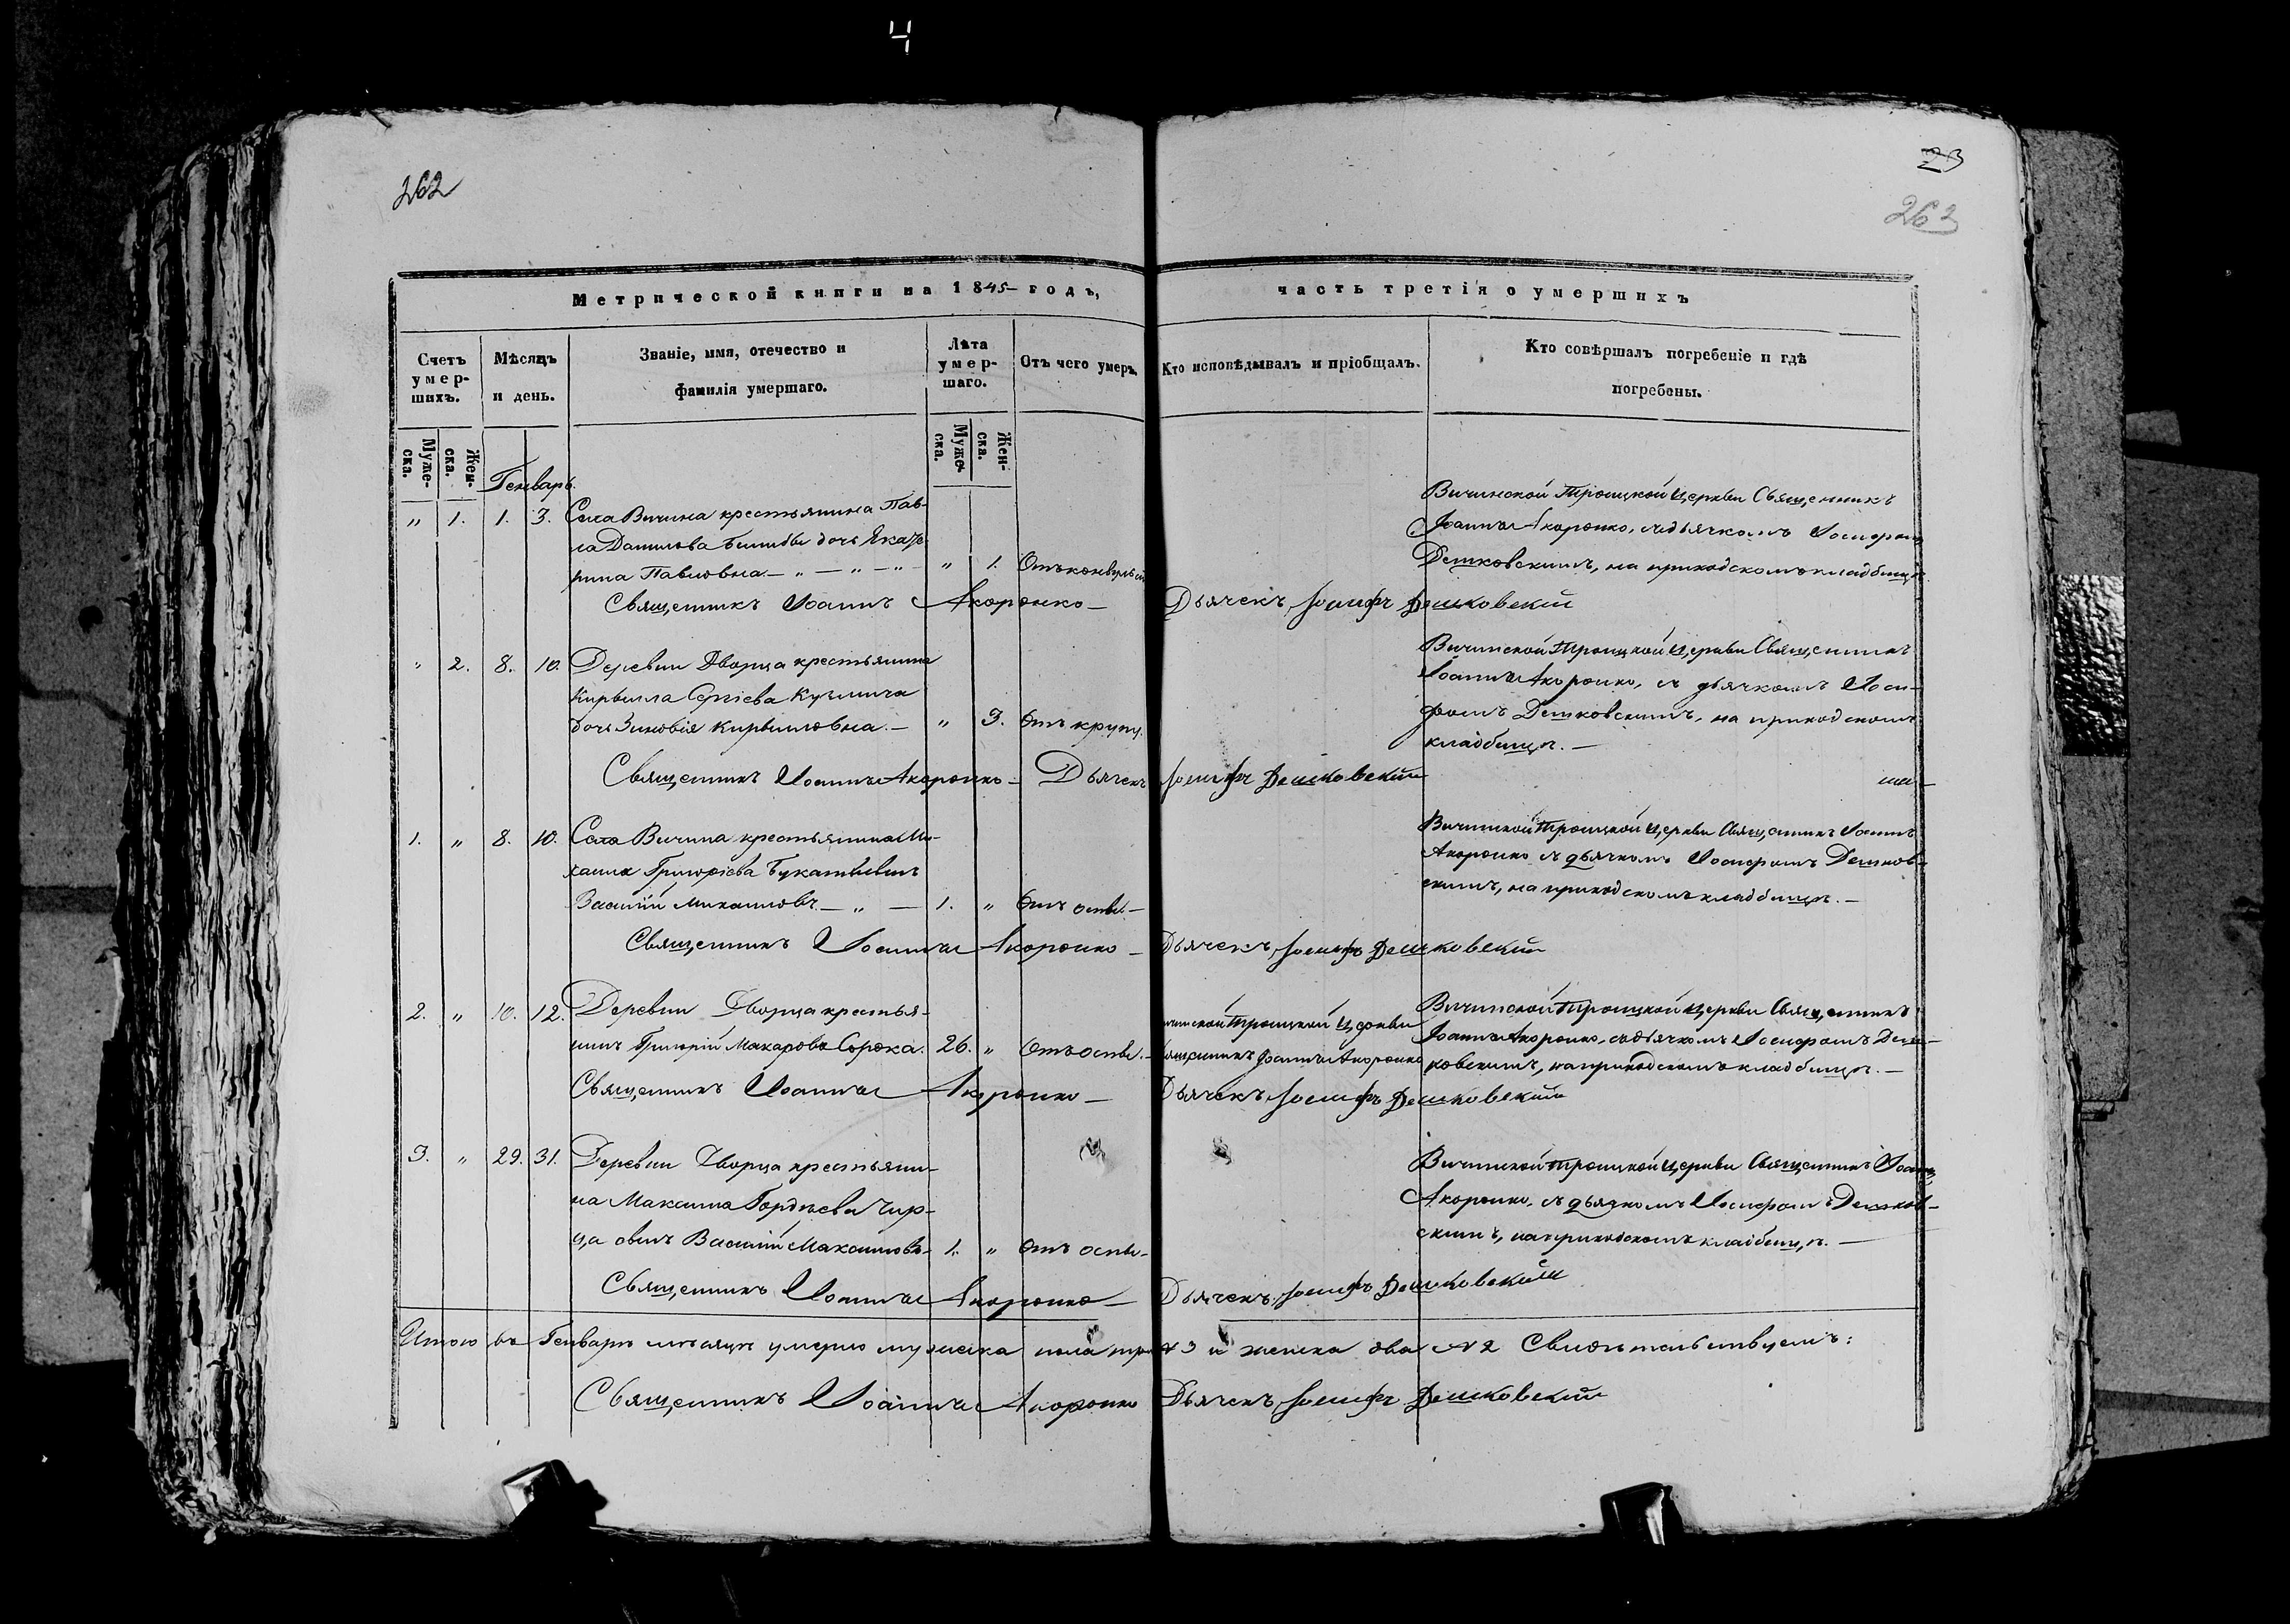 4
262
23
263
Метрической книги на 1845 годъ,
часть третія о умершихъ
Счетъ умер-шихъ.
Мѣсяцъ и день.
Званіе, имя, отечество и
фамилія умершаго.
Лѣта умер-шаго.
Отъ чего умеръ.
Кто исповѣдывалъ и пріобщалъ.
Кто совѣршалъ погребеніе и гдѣ
погребены.
Муже-ска.
Жен-ска.
Муже-ска.
Жен-ска.
Генварь.
" 1. 1. 3. Села Вичина крестьянина Пав-
ла Данилова дочь Екате
рина Павловна — " — " — " " 1. Отъ
Вичинской Троицкой Церкви Священникъ
Іоаннъ Акоронко, съ дьячкомъ Іосифомъ
Дешковскимъ, на приходскомъ кладбищѣ.
Священникъ Іоаннъ Акоронко — Дьячекъ Іосифъ Дешковскій
" 2. 8. 10. Деревни Дворца крестьянина
Кирылла Сергіева Кузьмича
дочь Зиновія Кирылловна. — " 3. Отъ крупу.
Вичинской Троицкой Церкви Священникъ
Іоаннъ Акоронко, съ дьячкомъ Іоси-
фомъ Дешковскимъ, на приходскомъ
кладбищѣ. —
Священникъ Іоаннъ Акоронко — Дьячекъ Іосифъ Дешковскій
1. " 8. 10. Села Вичина крестьянина Ми-
хаила Григоріева
Василій Михаиловъ — " — 1. " Отъ оспы. —
Вичинской Троицкой Церкви Священникъ Іоаннъ
Акоронко съ дьячкомъ Іосифомъ Дешков-
скимъ, на приходскомъ кладбищѣ. —
Священникъ Іоаннъ Акоронко — Дьячекъ Іосифъ Дешковскій
2. " 10. 12. Деревни Дворца крестья-
нинъ Григорій Макаровъ Сорока. 26. " Отъ оспы. —
Вичинской Троицкой Церкви
Священникъ Іоаннъ Акоронко
Вичинской Троицкой Церкви Священникъ
Іоаннъ Акоронко, съ дьячкомъ Іосифомъ Деш-
ковскимъ, на приходскомъ кладбищѣ. —
Священникъ Іоаннъ Акоронко — Дьячекъ Іосифъ Дешковскій
3. " 29. 31. Деревни Дворца крестьяни-
на Максима Гордѣева Чир-
ца сынъ Василій Максимовъ — 1. " Отъ оспы. —
Вичинской Троицкой Церкви Священникъ Іоаннъ
Акоронко, съ дьячкомъ Іосифомъ Дешков-
скимъ, на приходскомъ кладбищѣ. —
Священникъ Іоаннъ Акоронко — Дьячекъ Іосифъ Дешковскій
Итого въ Генварѣ мѣсяцѣ умерло мужеска пола три № 3 и женска два № 2 Свидѣтельствуемъ:
Священникъ Іоаннъ Акоронко Дьячекъ Іосифъ Дешковскій